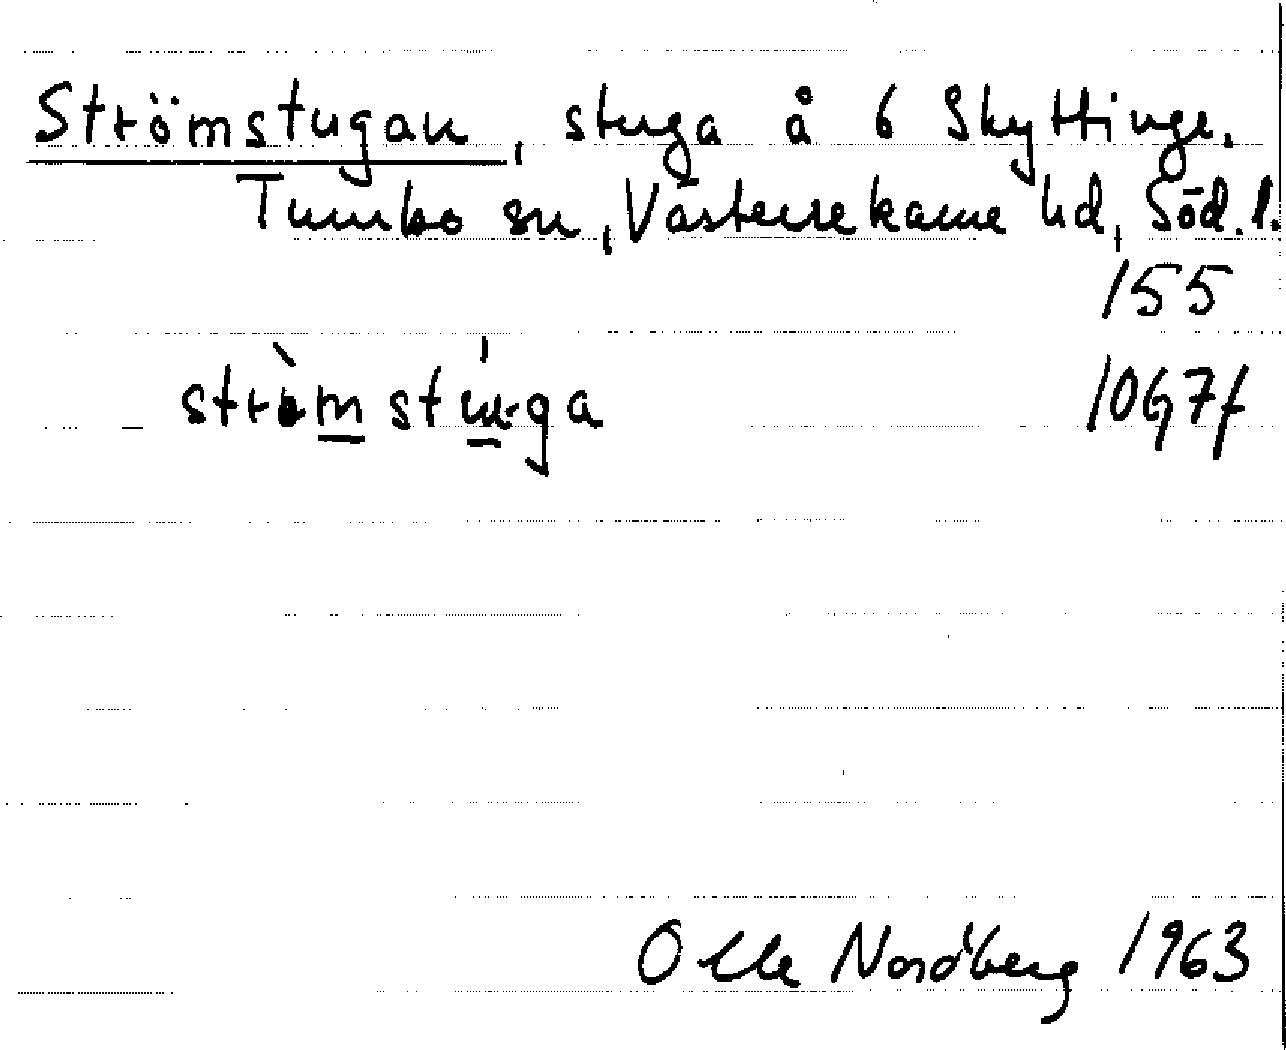 Strömstugan, stuga å 6 Skyttinge.
Tumbo sn, Västerrekarne hd, Söd. l.
155
strömstuga 10G7f
Olle Nordberg 1963